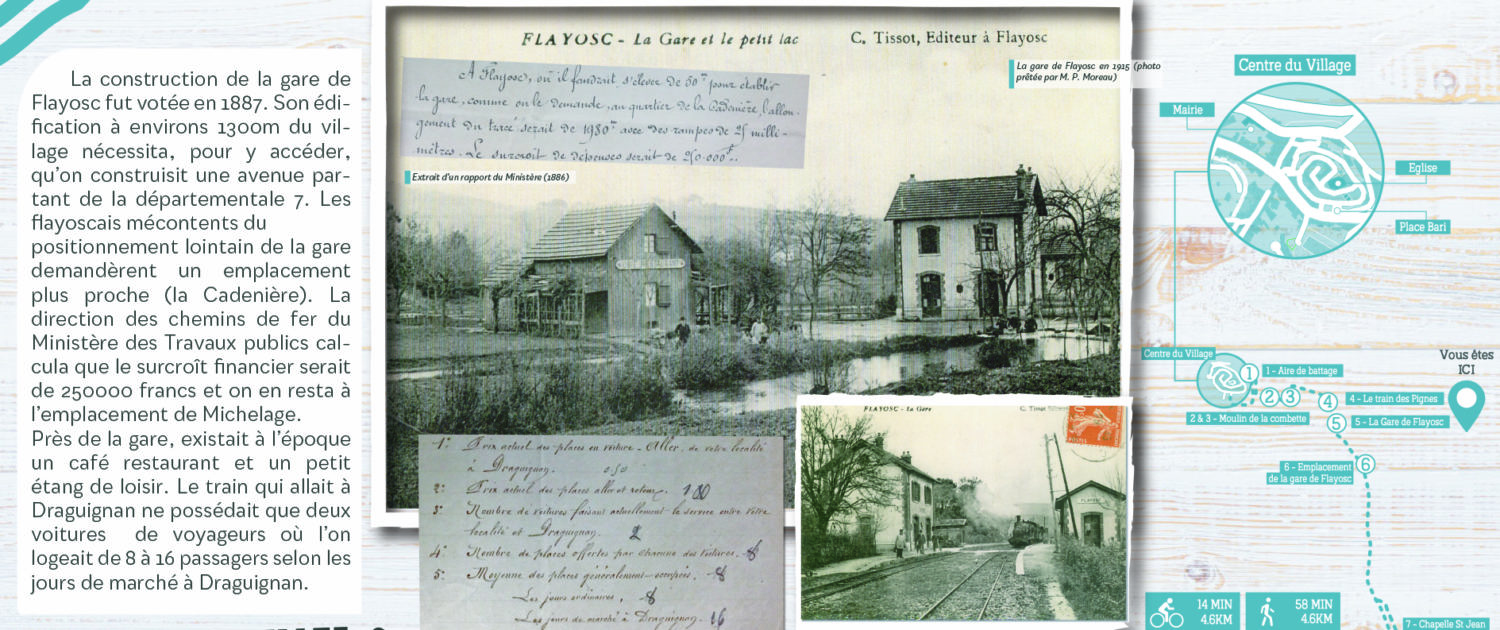 La construction de la gare de
Flayosc fut votée en 1887. Son édi-
fication à environs 1300m du vil-
lage nécessita, pour y accéder,
qu'on construisit une avenue par-
tant de la départementale 7. Les
flayoscais mécontents du
positionnement lointain de la gare
demandèrent un emplacement
plus proche (la Cadenière). La
direction des chemins de fer du
Ministère des Travaux publics cal-
cula que le surcroît financier serait
de 250000 francs et on en resta à
l'emplacement de Michelage.
Près de la gare, existait à l'époque
un café restaurant et un petit
étang de loisir. Le train qui allait à
Draguignan ne possédait que deux
voitures de voyageurs où l'on
logeait de 8 à 16 passagers selon les
jours de marché à Draguignan.
FLAYOSC - La Gare et le petit lac
C. Tissot, Editeur à Flayosc
La gare de Flayosc en 1915 (photo
prêtée par M. P. Moreau)
A Flayosc, où il faudrait s'élever de 50m pour établir
la gare, comme on le demande, au quartier de la Cadenière, l'allon-
gement du tracé serait de 1980m avec des rampes de 25 milli-
mètres. Le surcroît de dépenses serait de 250.000f.
Extrait d'un rapport du Ministère (1886)
1° Prix actuel des places en voiture - Aller, de votre localité
à Draguignan. 0.50
2° Prix actuel des places aller et retour. 1.00
3° Nombre de voitures faisant actuellement le service entre votre
localité et Draguignan. 2
4° Nombre de places offertes par chacune des voitures. 8
5° Moyenne des places généralement occupées. 8
Les jours ordinaires, 8
Les jours de marché à Draguignan. 16
FLAYOSC - La Gare
C. Tissot
POSTES
FLAYOSC
Centre du Village
Mairie
Eglise
Place Bari
Centre du Village
Vous êtes
ICI
1
1 - Aire de battage
2
3
2 & 3 - Moulin de la combette
4
4 - Le train des Pignes
5
5 - La Gare de Flayosc
6
6 - Emplacement
de la gare de Flayosc
14 MIN
4.6KM
58 MIN
4.6KM
7 - Chapelle St Jean